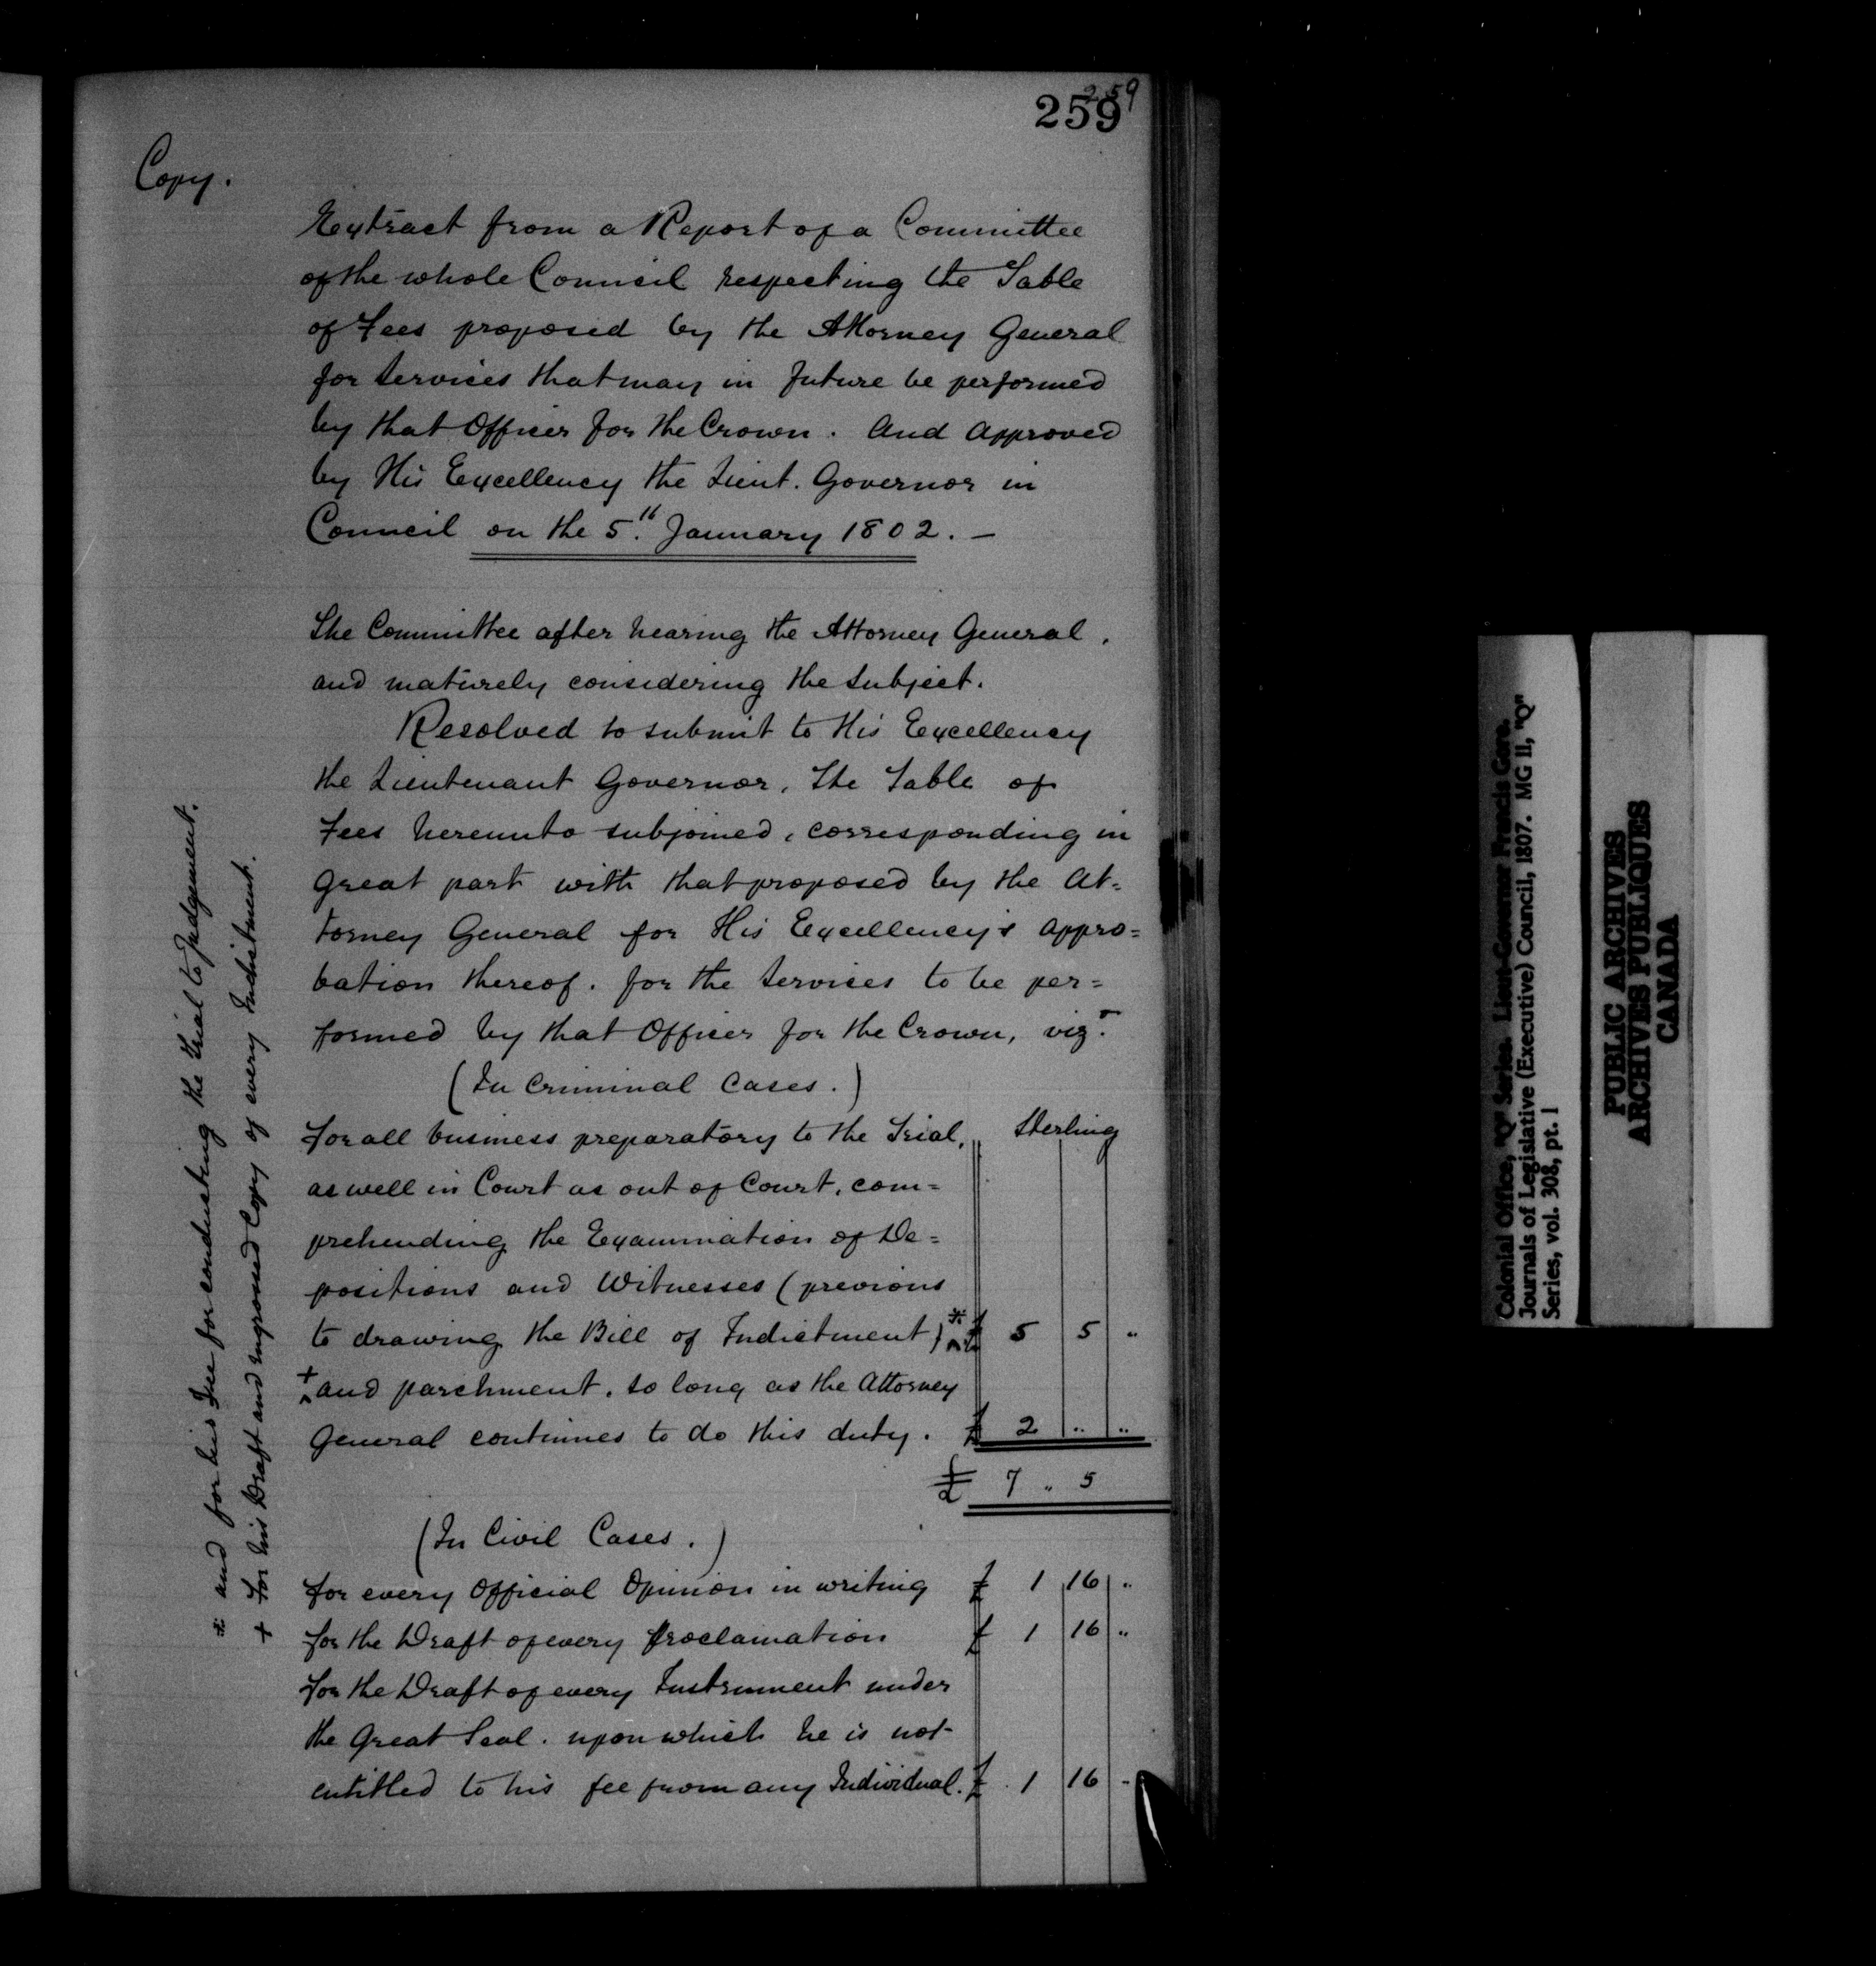 259
259
Copy.
Extract from a Report of a Committee
of the whole Council respecting the Table
of Fees proposed by the Attorney General
for Services that may in future be performed
by that Officer for the Crown. And Approved
by His Excellency the Lieut. Governor in
Council on the 5.th January 1802. —
The Committee after hearing the Attorney General,
and maturely considering the subject.
Resolved to submit to His Excellency
the Lieutenant Governor, The Table of
Fees hereunto subjoined, corresponding in
great part with that proposed by the At=
torney General for His Excellency's Appro=
bation thereof. for the Services to be per=
formed by that Officer for the Crown, viz.t
(In Criminal Cases.)
For all business preparatory to the Trial, Sterling
as well in Court as out of Court, com=
prehending the Examination of De=
positions and Witnesses (previous
to drawing the Bill of Indictment) * £ 5 5 "
+ and parchment, so long as the Attorney
General continues to do this duty. £ 2 " "
£ 7 " 5
(In Civil Cases.)
for every Official Opinion in writing £ 1 16 "
for the Draft of every Proclamation £ 1 16 "
For the Draft of every Instrument under
the Great Seal. upon which he is not
entitled to his fee from any Individual. £ 1 16 -
* and for his Fee for conducting the trial to Judgement.
+ For his Draft and engrossed Copy of every Indictment.
Colonial Office, "Q" Series. Lieut-Governor Francis Gore.
Journals of Legislative (Executive) Council, 1807. MG 11, "Q"
Series, vol. 308, pt. 1
PUBLIC ARCHIVES
ARCHIVES PUBLIQUES
CANADA